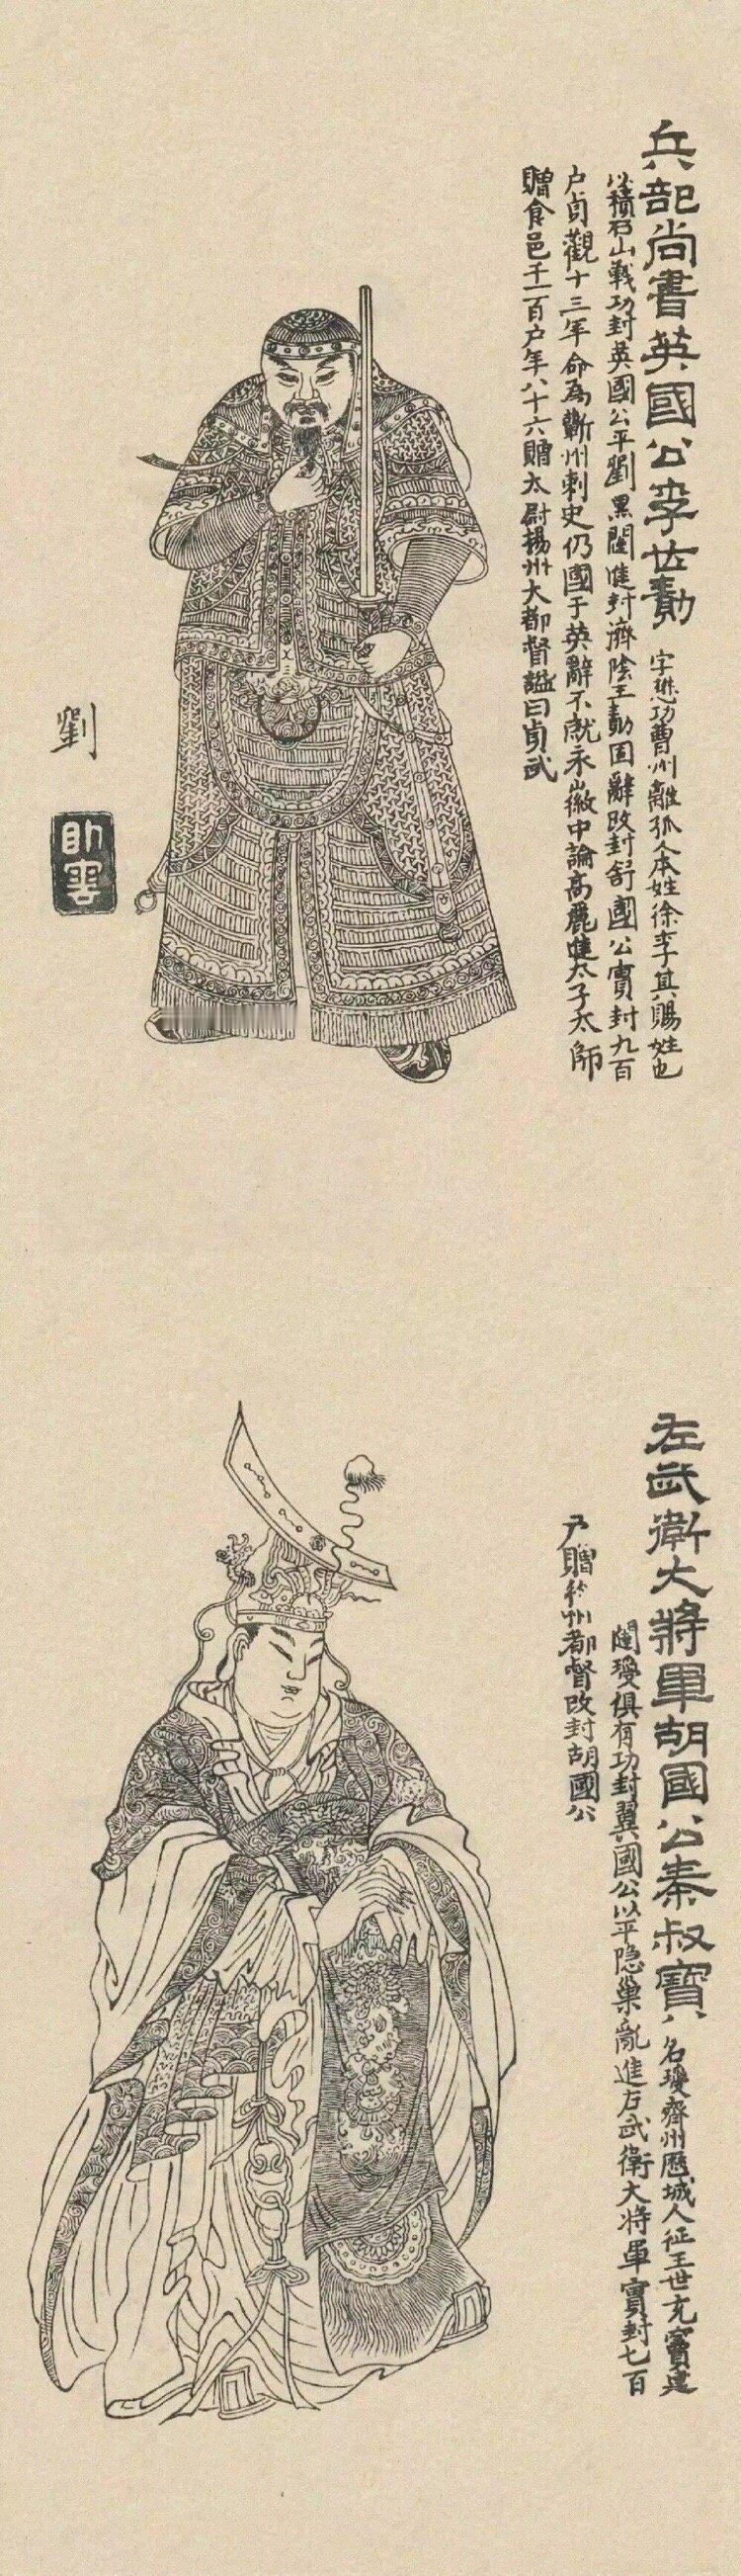 兵部尚書英國公李世勣
字懋功曹州離狐人本姓徐李其賜姓也
以積石山戰功封英國公平劉黑闥進封濟陰王勣固辭改封舒國公實封九百
户貞觀十三年命為蘄州刺史仍國于英辭不就永徽中論高麗進太子太師
贈食邑千一百户年八十六贈太尉揚州大都督謚曰貞武
劉
左武衛大將軍胡國公秦叔寶
名瓊齊州歷城人征王世充竇建
闥瓊俱有功封翼國公以平隐巢亂進左武衛大將軍實封七百
户贈徐州都督改封胡國公